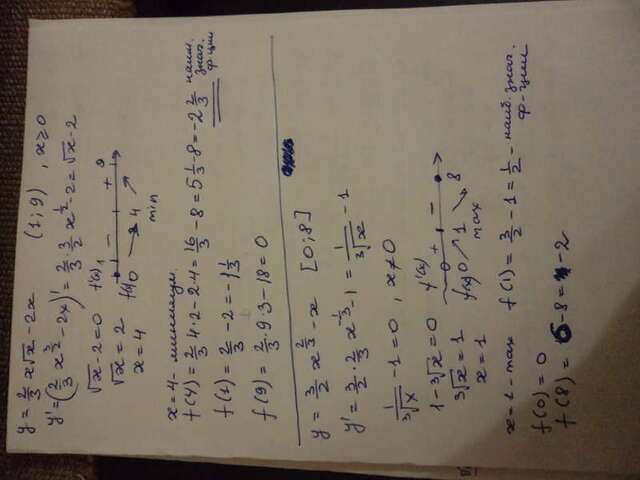 y = 2/3 x√x - 2x   (1; 9) , x ≥ 0
y' = (2/3 x^(3/2) - 2x)' = 2/3 · 3/2 x^(1/2) - 2 = √x - 2
√x - 2 = 0   f'(x) 1 - + 9
√x = 2   f(x) 0 4
x = 4   min
x = 4 - минимум.
f(4) = 2/3 · 4 · 2 - 2·4 = 16/3 - 8 = 5 1/3 - 8 = -2 2/3 наим. знач. ф-ции
f(1) = 2/3 - 2 = -1 1/3
f(9) = 2/3 · 9 · 3 - 18 = 0
y = 3/2 x^(2/3) - x   [0; 8]
y' = 3/2 · 2/3 x^(-1/3) - 1 = 1/∛x - 1
1/∛x - 1 = 0 , x ≠ 0
1 - ∛x = 0   f'(x) + -
∛x = 1   f(x) 0 1 8
x = 1   max
x = 1 - max   f(1) = 3/2 - 1 = 1/2 - наиб. знач. ф-ции
f(0) = 0
f(8) = 6 - 8 = -2